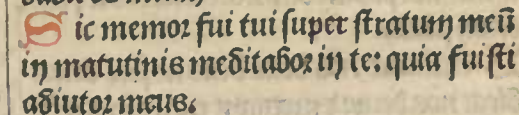 Sic memor fui tui super stratum meū
in matutinis meditabor in te: quia fuisti
adiutor meus.